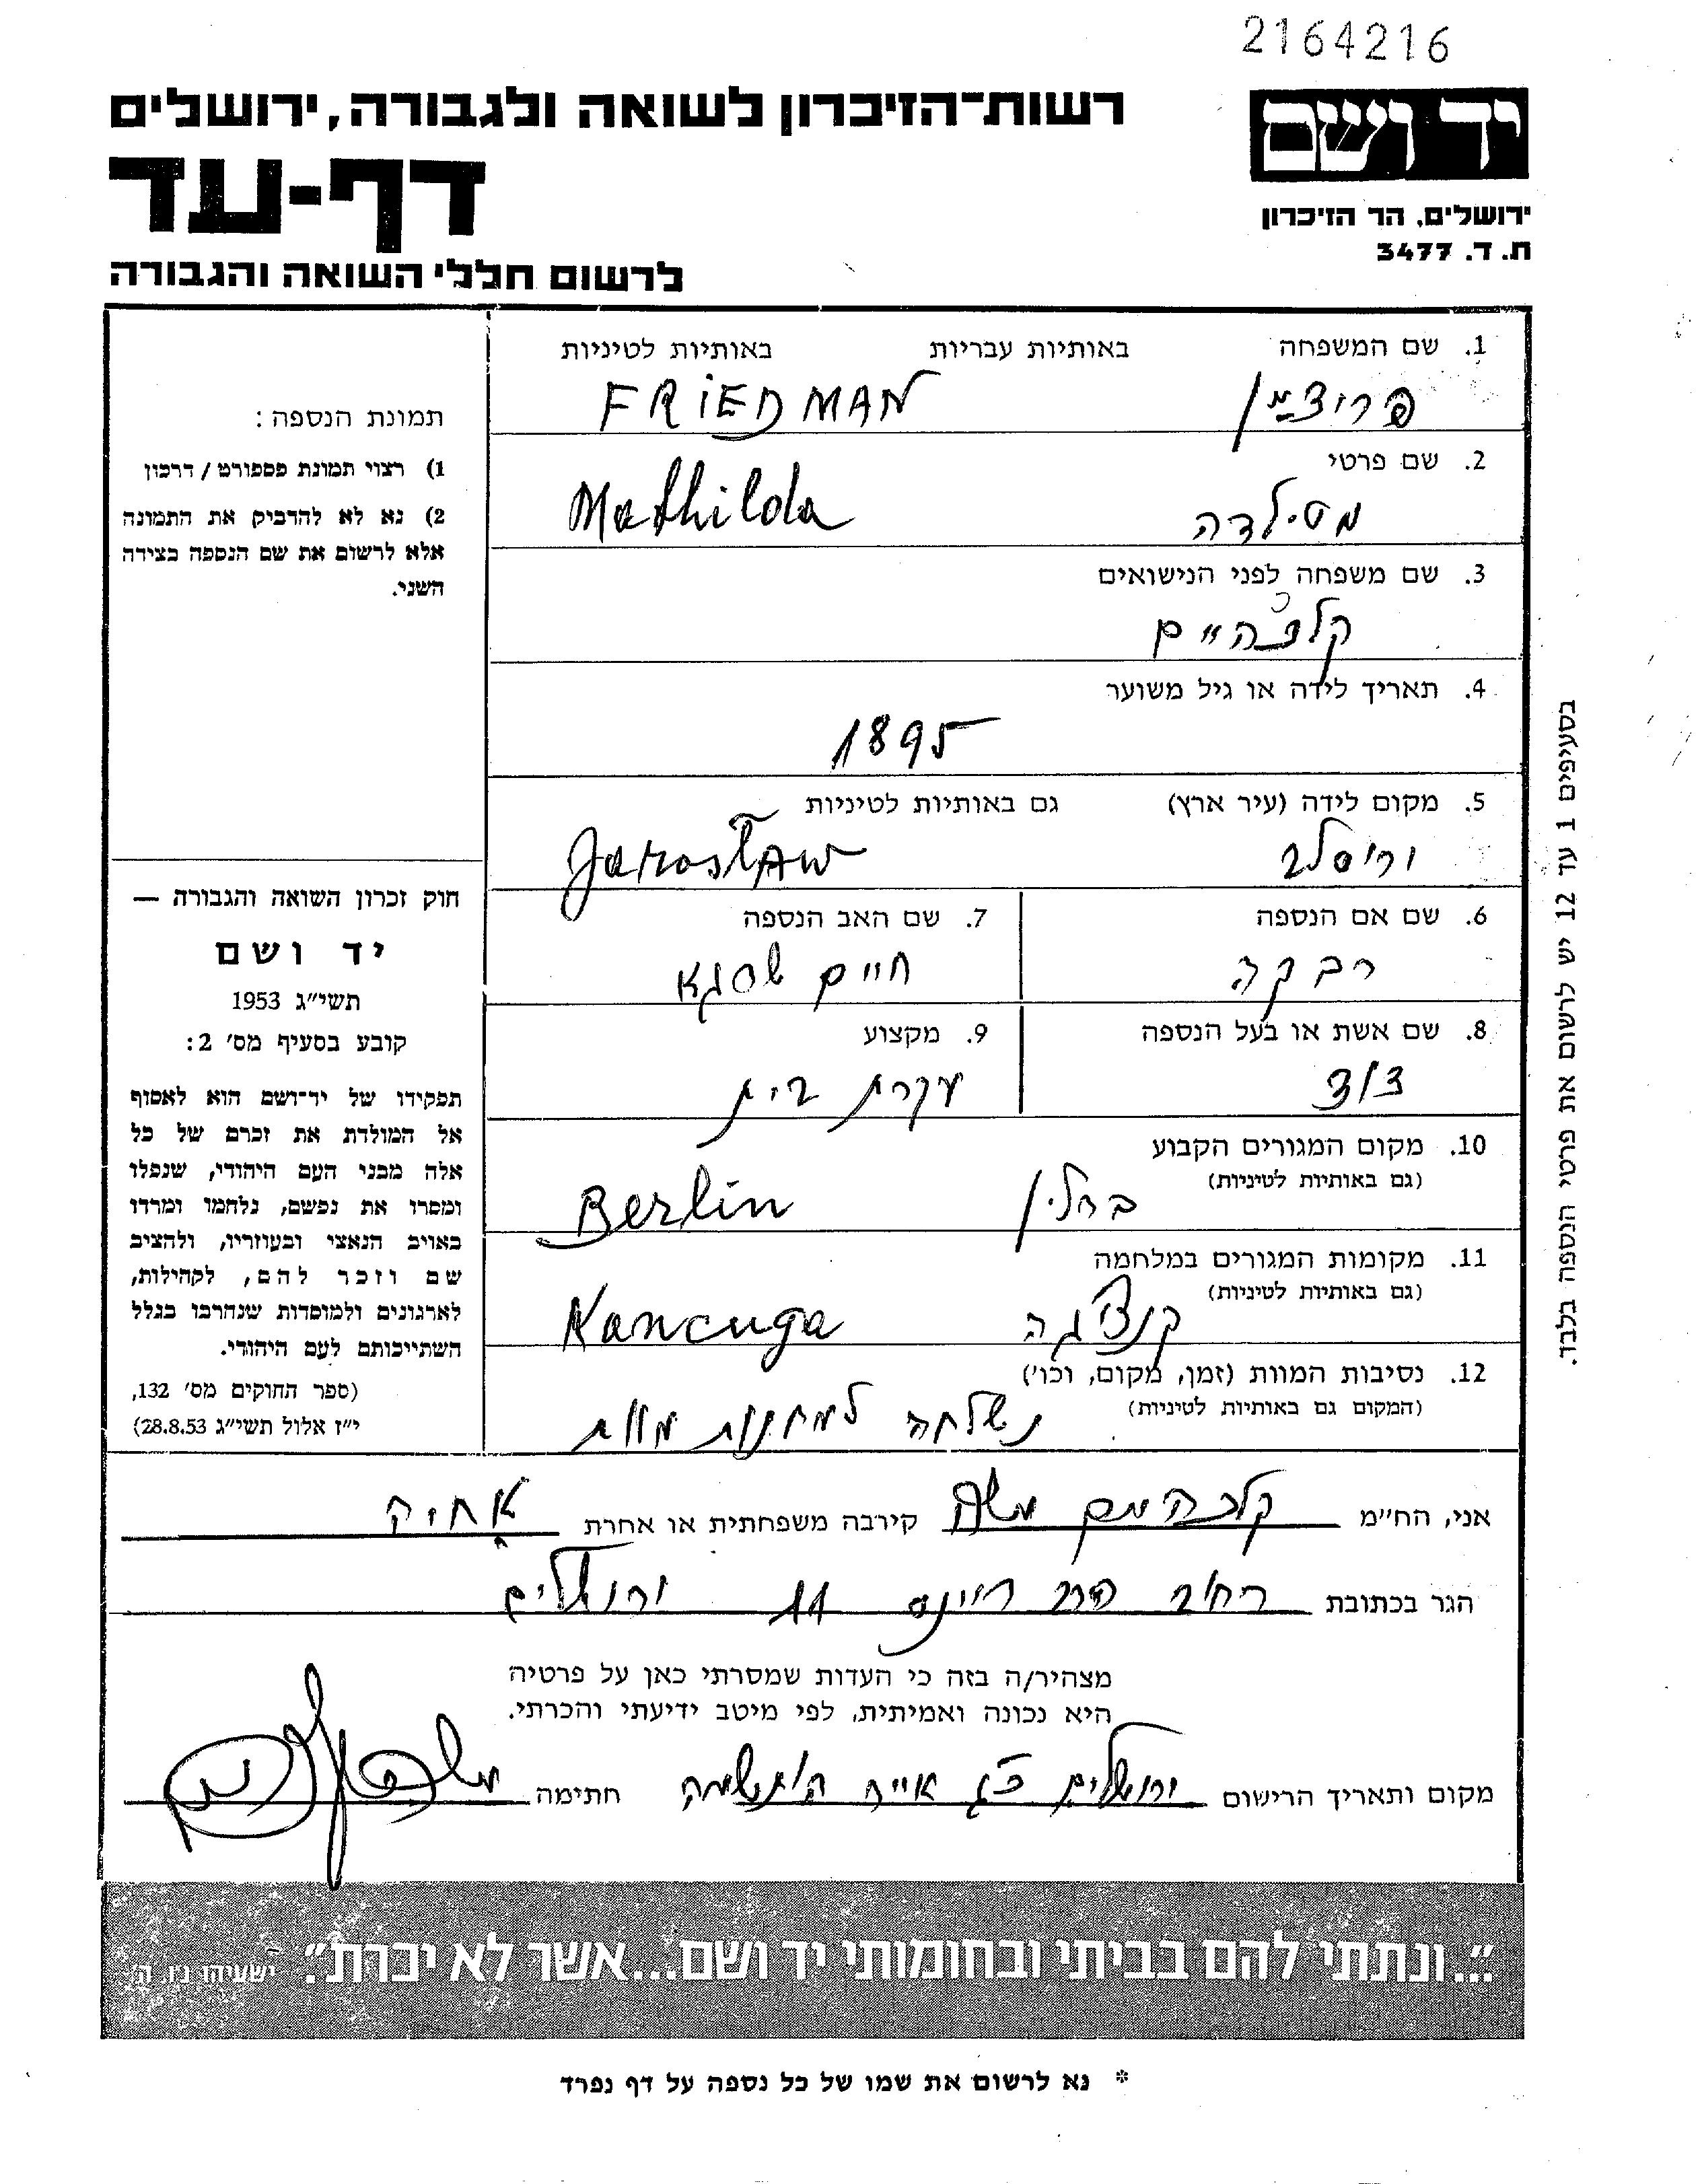 2164216
יד ושם
רשות־הזיכרון לשואה ולגבורה, ירושלים
דף-עד
ירושלים, הר הזיכרון
ת. ד. 3477
לרשום חללי השואה והגבורה
1. שם המשפחה באותיות עבריות באותיות לטיניות
פרידמן FRIEDMAN
2. שם פרטי
מטילדה Mathilda
3. שם משפחה לפני הנישואים
4. תאריך לידה או גיל משוער
1895
5. מקום לידה (עיר ארץ) גם באותיות לטיניות
Jarosław
6. שם אם הנספה
רבקה
7. שם האב הנספה
חיים
8. שם אשת או בעל הנספה
דוד
9. מקצוע
עקרת בית
10. מקום המגורים הקבוע
(גם באותיות לטיניות)
ברלין Berlin
11. מקומות המגורים במלחמה
(גם באותיות לטיניות)
קנצ'גה Kancuga
12. נסיבות המוות (זמן, מקום, וכו')
(המקום גם באותיות לטיניות)
נשלחה למחנות מוות
תמונת הנספה:
1) רצוי תמונת פספורט / דרכון
2) נא לא להדביק את התמונה
אלא לרשום את שם הנספה בצידה
השני.
חוק זכרון השואה והגבורה —
יד ושם
תשי״ג 1953
קובע בסעיף מס׳ 2:
תפקידו של יד־ושם הוא לאסוף
אל המולדת את זכרם של כל
אלה מבני העם היהודי, שנפלו
ומסרו את נפשם, נלחמו ומרדו
באויב הנאצי ובעוזריו, ולהציב
שם וזכר להם, לקהילות,
לארגונים ולמוסדות שנחרבו בגלל
השתייכותם לעם היהודי.
(ספר החוקים מס׳ 132,
י״ז אלול תשי״ג 28.8.53)
בסעיפים 1 עד 12 יש לרשום את פרטי הנספה בלבד.
אני, הח״מ משה קירבה משפחתית או אחרת אחיה
הגר בכתובת רחוב 11 ירושלים
מצהיר/ה בזה כי העדות שמסרתי כאן על פרטיה
היא נכונה ואמיתית, לפי מיטב ידיעתי והכרתי.
מקום ותאריך הרישום ירושלים אייר חתימה
״...ונתתי להם בביתי ובחומותי יד ושם...אשר לא יכרת״. ישעיהו נ״ו, ה׳
* נא לרשום את שמו של כל נספה על דף נפרד